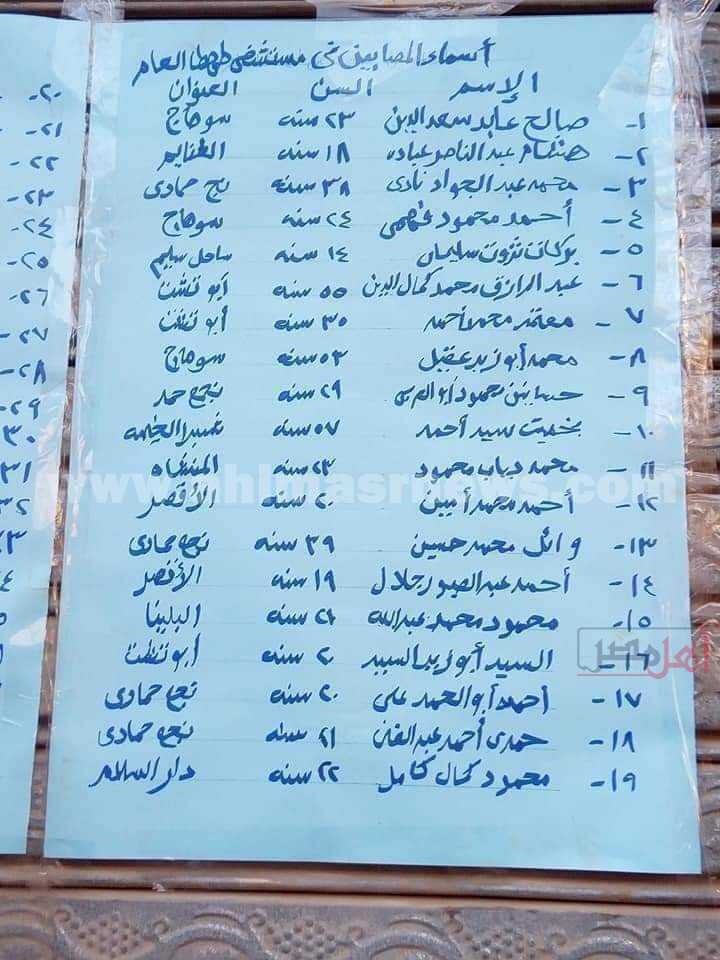 أسماء المصابين في مستشفى طهطا العام
الإسم السن العنوان
١- صالح عابد سعد الدين ٢٣ سنه سوهاج
٢- هشام عبد الناصر عباده ١٨ سنه الغنايم
٣- محمد عبد الجواد نادى ٣٨ سنه نجع حمادى
٤- أحمد محمود فهمى ٢٤ سنه سوهاج
٥- بركات ثروت سليمان ١٤ سنه ساحل سليم
٦- عبد الرازق محمد كمال الدين ٥٥ سنه أبو تشت
٧- معتمد محمد أحمد ٣٠ سنه أبو تشت
٨- محمد أبو زيد عقيل ٥٣ سنه سوهاج
٩- محمود ٢٩ سنه نجع حمد
١٠- بخيت سيد أحمد ٥٧ سنه
١١- محمد دياب محمود ٢٣ سنه المنشاه
١٢- أحمد محمد أمين ٢٠ سنه الأقصر
١٣- وائل محمد حسين ٣٩ سنه نجع حمادى
١٤- أحمد عبد الصبور جلال ١٩ سنه الأقصر
١٥- محمود محمد عبد الله ٢١ سنه البلينا
١٦- السيد أبو زيد السيد ٢٠ سنه أبو تشت
١٧- أحمد أبو الحمد على ٢٠ سنه نجع حمادى
١٨- حمدى أحمد عبد الغنى ٢١ سنه نجع حمادى
١٩- محمود كمال كامل ٢٢ سنه دار السلام
٢٠-
٢١-
٢٢-
٢٣-
٢٤-
٢٥-
٢٦-
٢٧-
٢٨-
٢٩-
٣٠
٣١
٣٢
www.ahlmasrnews.com
أهل مصر